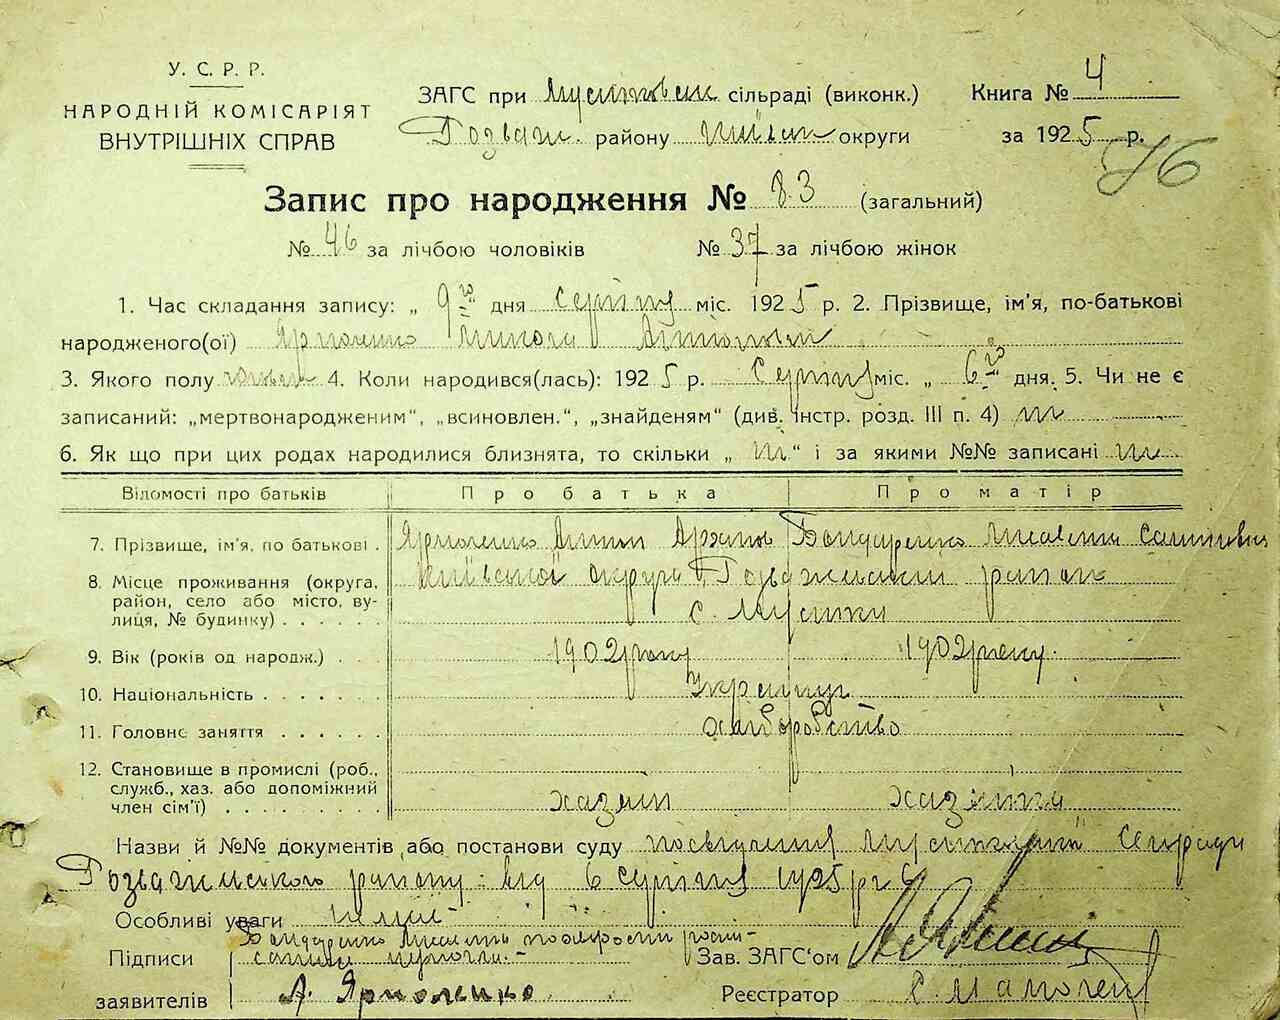 У. С. Р. Р.
НАРОДНІЙ КОМІСАРІЯТ
ВНУТРІШНІХ СПРАВ
ЗАГС при сільраді (виконк.)
Розваж. району Київськ округи
Книга № 4
за 1925 р.
76
Запис про народження № 83 (загальний)
№ 46 за лічбою чоловіків № 37 за лічбою жінок
1. Час складання запису: „ 9го " дня Серпня міс. 1925 р. 2. Прізвище, ім'я, по-батькові
народженого(ої) Ярмоленко Микола Антонович
3. Якого полу 4. Коли народився(лась): 1925 р. Серпня міс. „ 6го " дня. 5. Чи не є
записаний: „мертвонародженим", „всиновлен.", „знайденям" (див. інстр. розд. III п. 4) ні
6. Як що при цих родах народилися близнята, то скільки „ ні " і за якими №№ записані ні
Відомості про батьків Про батька Про матір
7. Прізвище, ім'я, по батькові . Ярмоленко Антон Бондаренко
8. Місце проживання (округа, район, село або місто, ву-лиця, № будинку) . . . . . . Київської округи Розважівський район
с. Мусійки
9. Вік (років од народж.) . . . 1902 року 1902 року.
10. Національність . . . . . . . Українці
11. Головне заняття . . . . . . Хліборобство
12. Становище в промислі (роб., служб., хаз. або допоміжний член сім'ї) . . . . . . . . . хазяїн хазяйка
Назви й №№ документів або постанови суду посвідчення Сільради
Розважівського району від 6 Серпня 1925 р
Особливі уваги немає
Підписи Бондаренко
заявителів А. Ярмоленко
Зав. ЗАГС'ом
Реєстратор